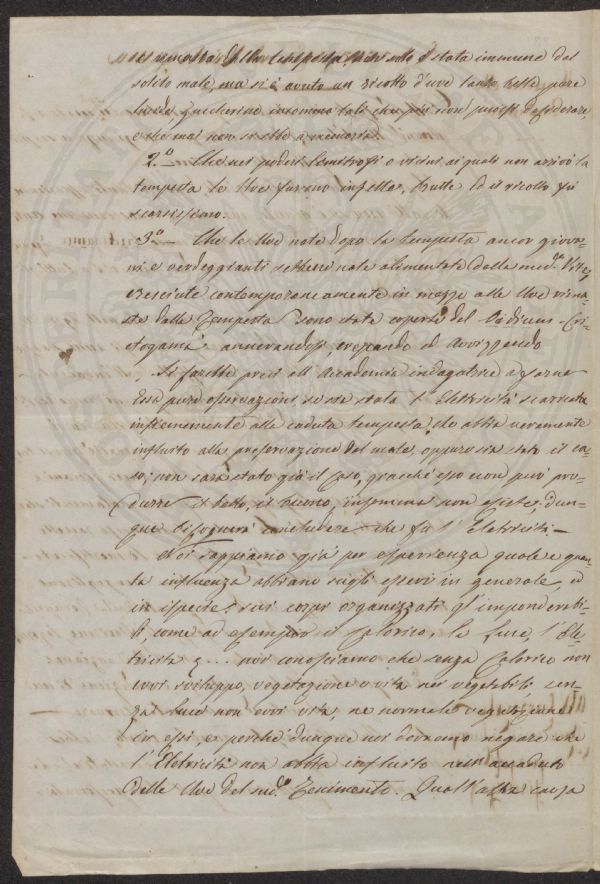 della tempesta, non solo è stata immune dal
solito male, ma si è avuto un ricolto d'uve tanto belle, pure
lucide, zuccherine insomma tali che più non puossi desiderare,
e che mai non si ebbe a memoria.
2.° — Che nei poderi limitrofi o vicini ai quali non arrivò la
tempesta le Uve furono infette, brutte ed il ricolto fu
scarsissimo.
3.° — Che le Uve nate dopo la tempesta ancor giova-
ni e verdeggianti sebbene nate alimentate dalle med.e Viti e
cresciute contemporaneamente in mezzo alle Uve rima-
ste dalla Tempesta sono state coperte del Oidium - Cri-
togama: annerandosi, crepando ed
Si farebbe preci all'Accademia indagatrice a farne
Essa pure osservazioni se sia stata l'Elettricità scaricata
insiememente alla caduta tempesta che abbia veramente
influito alla preservazione del male, oppure sia stato il ca-
so; non sarà stato già il Caso, giacchè esso non può pro-
durre il bello, il buono, insomma non esiste; dun-
que bisognerà concludere che fu l'Elettricità —
Noi sappiamo già per esperienza quale e quan-
ta influenza abbiano sugli esseri in generale, ed
in ispecie sui corpi organizzati gl'imponderabi-
li, come ad esempio il Calorico, la luce, l'Ele-
tricità &... noi conosciamo che senza Calorico non
evvi sviluppo, vegetazione o vita nei vegetabili, sen-
za luce non evvi vita, ne normale vegetazione
in essi, e perchè dunque noi dovremo negare che
l'Eletricità non abbia influito nell'accaduto
delle Uve del sud.o Tenimento. Quall'altra causa